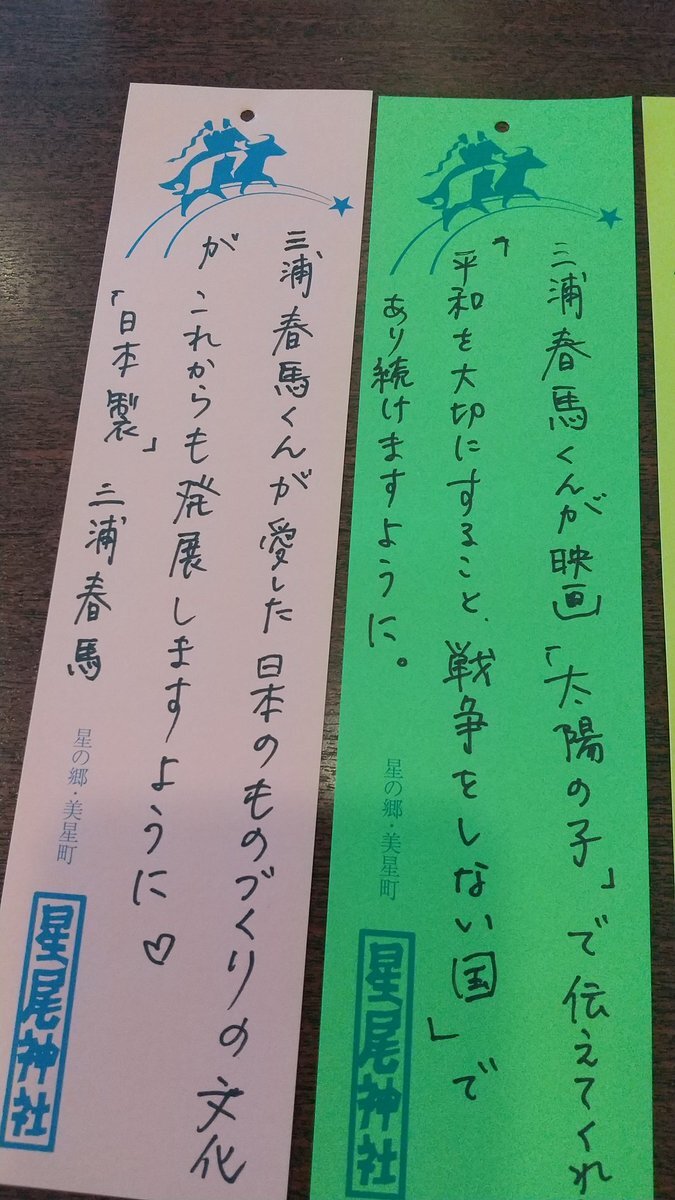 三浦春馬くんが映画「太陽の子」で伝えてくれ
「平和を大切にすること、戦争をしない国」で
あり続けますように。
星の郷・美星町
星尾神社
三浦春馬くんが愛した日本のものづくりの文化
が これからも発展しますように♡
「日本製」 三浦春馬
星の郷・美星町
星尾神社